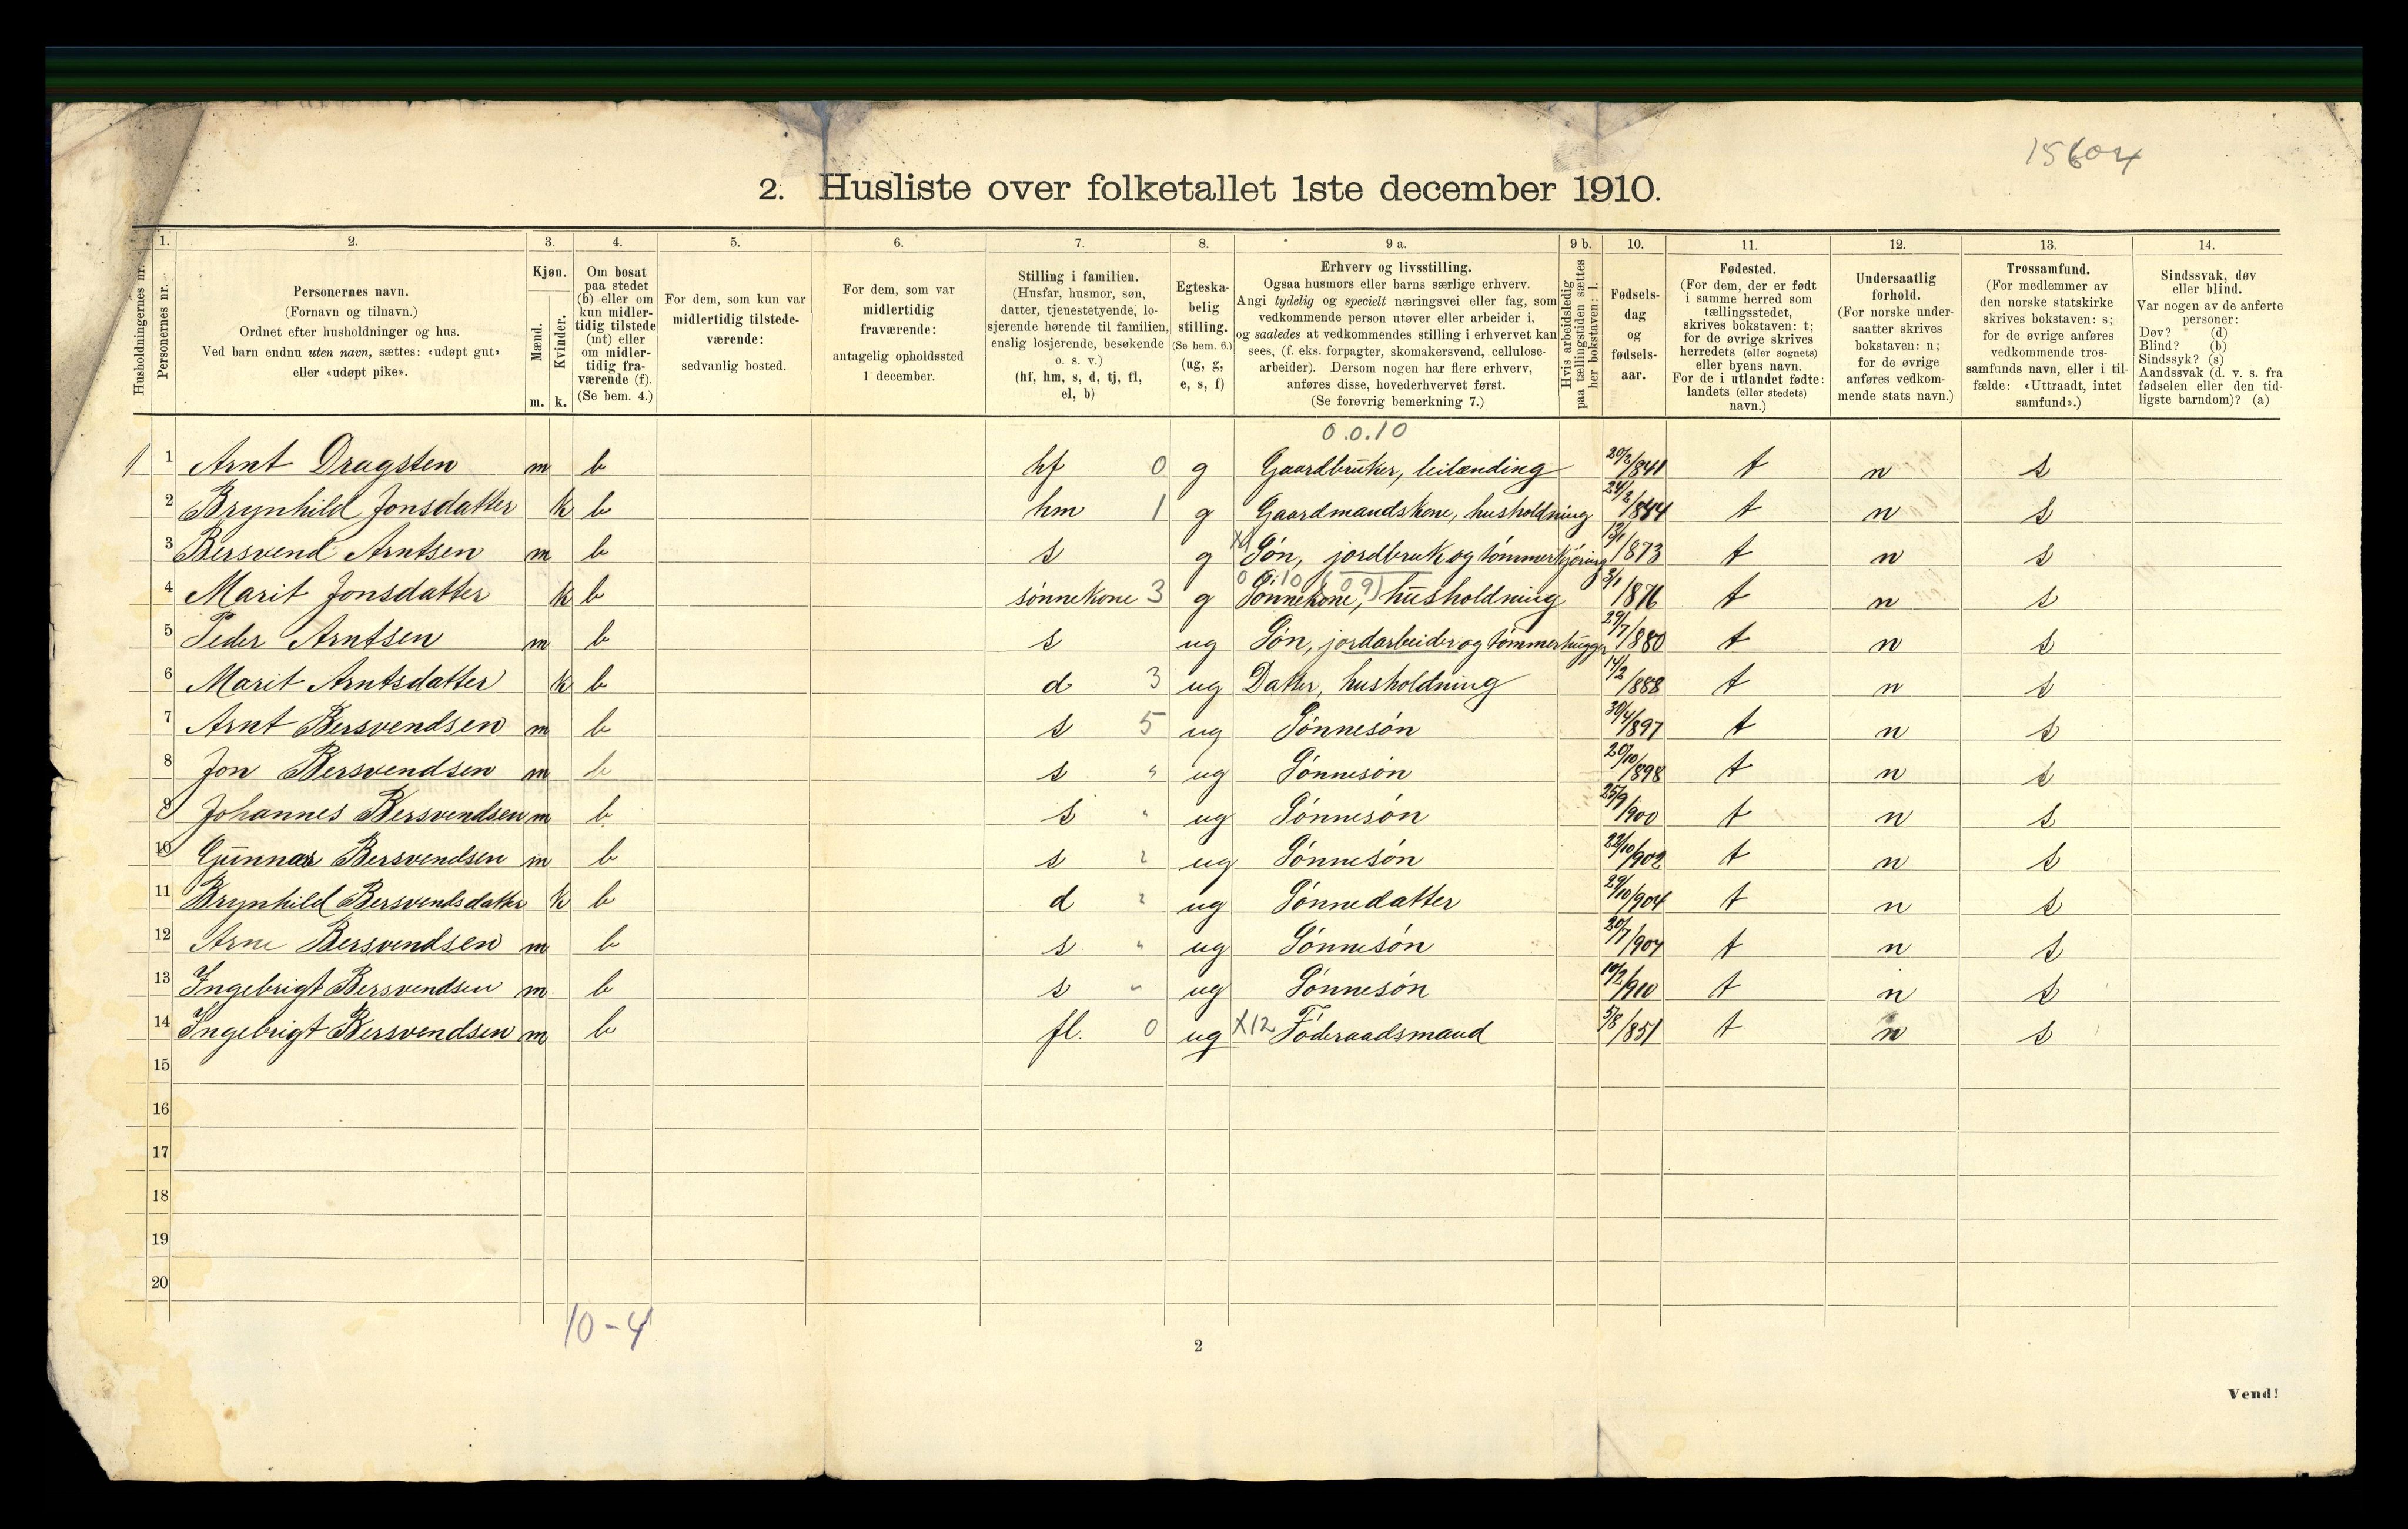 15604
2. Husliste over folketallet 1ste december 1910.
Husholdningernes nr.
1. Personernes nr.
2.
Personernes navn.
(Fornavn og tilnavn.)
Ordnet efter husholdninger og hus.
Ved barn endnu uten navn, sættes: «udøpt gut»
eller «udøpt pike».
3.
Kjøn.
Mænd. m.
Kvinder. k.
4.
Om bosat
paa stedet
(b) eller om
kun midler-
tidig tilstede
(mt) eller
om midler-
tidig fra-
værende (f).
(Se bem. 4.)
5.
For dem, som kun var
midlertidig tilstede-
værende:
sedvanlig bosted.
6.
For dem, som var
midlertidig
fraværende:
antagelig opholdssted
1 december.
7.
Stilling i familien.
(Husfar, husmor, søn,
datter, tjenestetyende, lo-
sjerende hørende til familien,
enslig losjerende, besøkende
o. s. v.)
(hf, hm, s, d, tj, fl,
el, b)
8.
Egteska-
belig
stilling.
(Se bem. 6.)
(ug, g,
e, s, f)
9 a.
Erhverv og livsstilling.
Ogsaa husmors eller barns særlige erhverv.
Angi tydelig og specielt næringsvei eller fag, som
vedkommende person utøver eller arbeider i,
og saaledes at vedkommendes stilling i erhvervet kan
sees, (f. eks. forpagter, skomakersvend, cellulose-
arbeider). Dersom nogen har flere erhverv,
anføres disse, hovederhvervet først.
(Se forøvrig bemerkning 7.)
9 b.
Hvis arbeidsledig
paa tællingstiden sættes
her bokstaven: l.
10.
Fødsels-
dag
og
fødsels-
aar.
11.
Fødested.
(For dem, der er født
i samme herred som
tællingsstedet,
skrives bokstaven: t;
for de øvrige skrives
herredets (eller sognets)
eller byens navn.
For de i utlandet fødte:
landets (eller stedets)
navn.)
12.
Undersaatlig
forhold.
(For norske under-
saatter skrives
bokstaven: n;
for de øvrige
anføres vedkom-
mende stats navn.)
13.
Trossamfund.
(For medlemmer av
den norske statskirke
skrives bokstaven: s;
for de øvrige anføres
vedkommende tros-
samfunds navn, eller i til-
fælde: «Uttraadt, intet
samfund».)
14.
Sindssvak, døv
eller blind.
Var nogen av de anførte
personer:
Døv? (d)
Blind? (b)
Sindssyk? (s)
Aandssvak (d. v. s. fra
fødselen eller den tid-
ligste barndom)? (a)
0.0.10
1 1 Arnt Dragsten m b hf 0 g Gaardbruker, leilænding 20/2/841 t n s
2 Brynhild Jonsdatter k b hm 1 g Gaardmandskone, husholdning 24/2/844 t n s
3 Bersvend Arntsen m b s g Søn, jordbruk og tømmerkjøring 13/1/873 t n s
4 Marit Jonsdatter k b sønnekone 3 g Sønnekone, husholdning 3/1/876 t n s
5 Peder Arntsen m b s ug Søn, jordarbeider og tømmerhugger 29/7/880 t n s
6 Marit Arntsdatter k b d 3 ug Datter, husholdning 14/2/888 t n s
7 Arnt Bersvendsen m b s 5 ug Sønnesøn 30/4/897 t n s
8 Jon Bersvendsen m b s " ug Sønnesøn 20/10/898 t n s
9 Johannes Bersvendsen m b s " ug Sønnesøn 25/9/900 t n s
10 Gunnar Bersvendsen m b s " ug Sønnesøn 22/10/902 t n s
11 Brynhild Bersvendsdatter k b d " ug Sønnedatter 29/10/904 t n s
12 Arne Bersvendsen m b s " ug Sønnesøn 20/7/907 t n s
13 Ingebrigt Bersvendsen m b s " ug Sønnesøn 10/2/910 t n s
14 Ingebrigt Bersvendsen m b fl. 0 ug X12 Føderaadsmand 5/8/851 t n s
15
16
17
18
19
20
10-4
2
Vend!